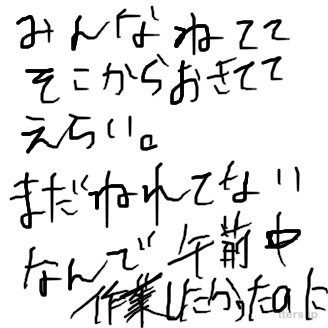 みんなねてて
そこからおきてて
えらい。
まだねれてない
なんで午前中
作業したかったのに